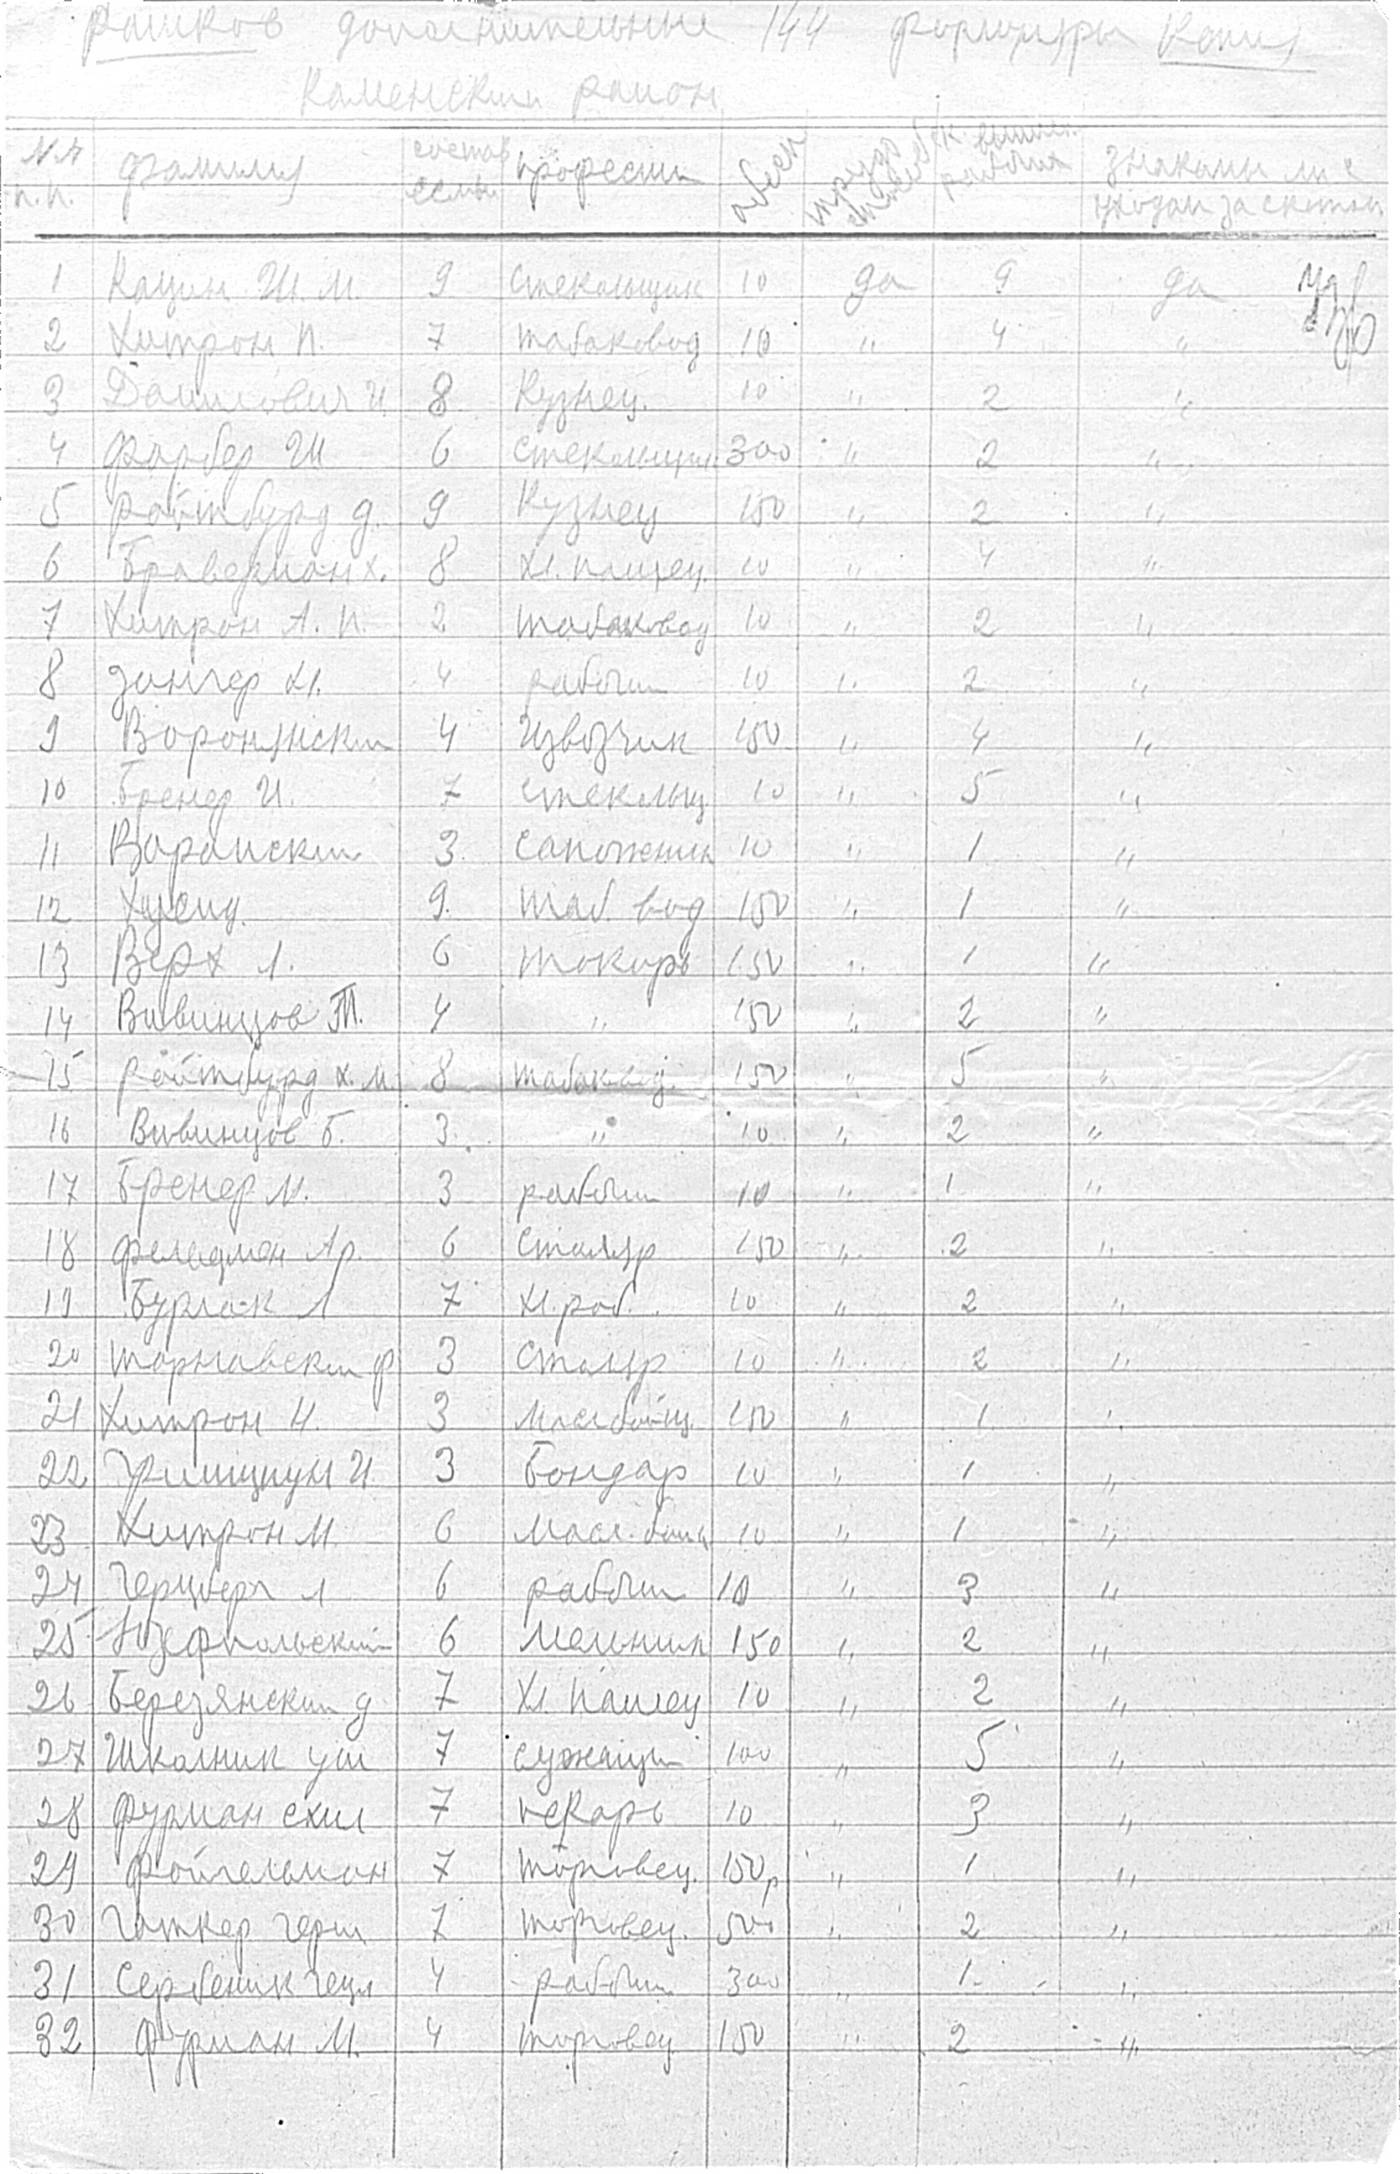 рашков дополнительные 144 формуляры Копия
Каменский район
№№ п.п. фамилия состав семьи професии к. выших. рабочих знакомы ли с уходом за скотом
1 Кацин Ш. М. 9 стекольщик 10 да 9 да
2 Хитрон П. 7 табаковод 10 " 4 "
3 Данилович И 8 Кузнец. 10 " 2 "
4 фарбер Ш 6 стекольщик 300 " 2 "
5 Ройтбурд д. 9 Кузнец 150 " 2 "
6 Браверман х. 8 хл. пашец. 10 " 4 "
7 Хитрон А. П. 2 табаковод 10 " 2 "
8 зингер М. 4 рабочий 10 " 2 "
9 Воронянский 4 Извозчик 150 " 4 "
10 Бренер И. 7 стекольщ 10 " 5 "
11 Варанский 3 сапожник 10 " 1 "
12 Хусид. 9. таб. вод 150 " 1 "
13 Верх Л. 6 токарь 150 " 1 "
14 Вивинцов Т. 4 " 150 " 2 "
15 ройтбурд х. м. 8 табаковод. 150 " 5 "
16 Вивинцов Б. 3 " 10 " 2 "
17 Бренер М. 3 рабочий 10 " 1 "
18 фельдман Ар. 6 столяр 150 " 2 "
19 Бурлак Л 7 хл. роб. 10 " 2 "
20 тарнавский ф 3 столяр 10 " 2 "
21 Хитрон Н. 3 маслобойщ. 150 " 1 "
22 Гринщпун И 3 Бондар 10 " 1 "
23 Хитрон М. 6 масл. бойщ 10 " 1 "
24 Герцберг Л 6 рабочий 10 " 3 "
25 Юзефпольский 6 мельник 150 " 2 "
26 Березянский д 7 хл. пашец 10 " 2 "
27 Школник уш 7 служащий 100 " 5 "
28 фурман ехил 7 пекарь 10 " 3 "
29 Фойгельман 7 торговец. 150р " 1 "
30 Готкер герш 7 торговец. 500 " 2 "
31 Сербеник Гецл 4 рабочий 300 " 1 "
32 фурман М. 4 торговец 150 " 2 "